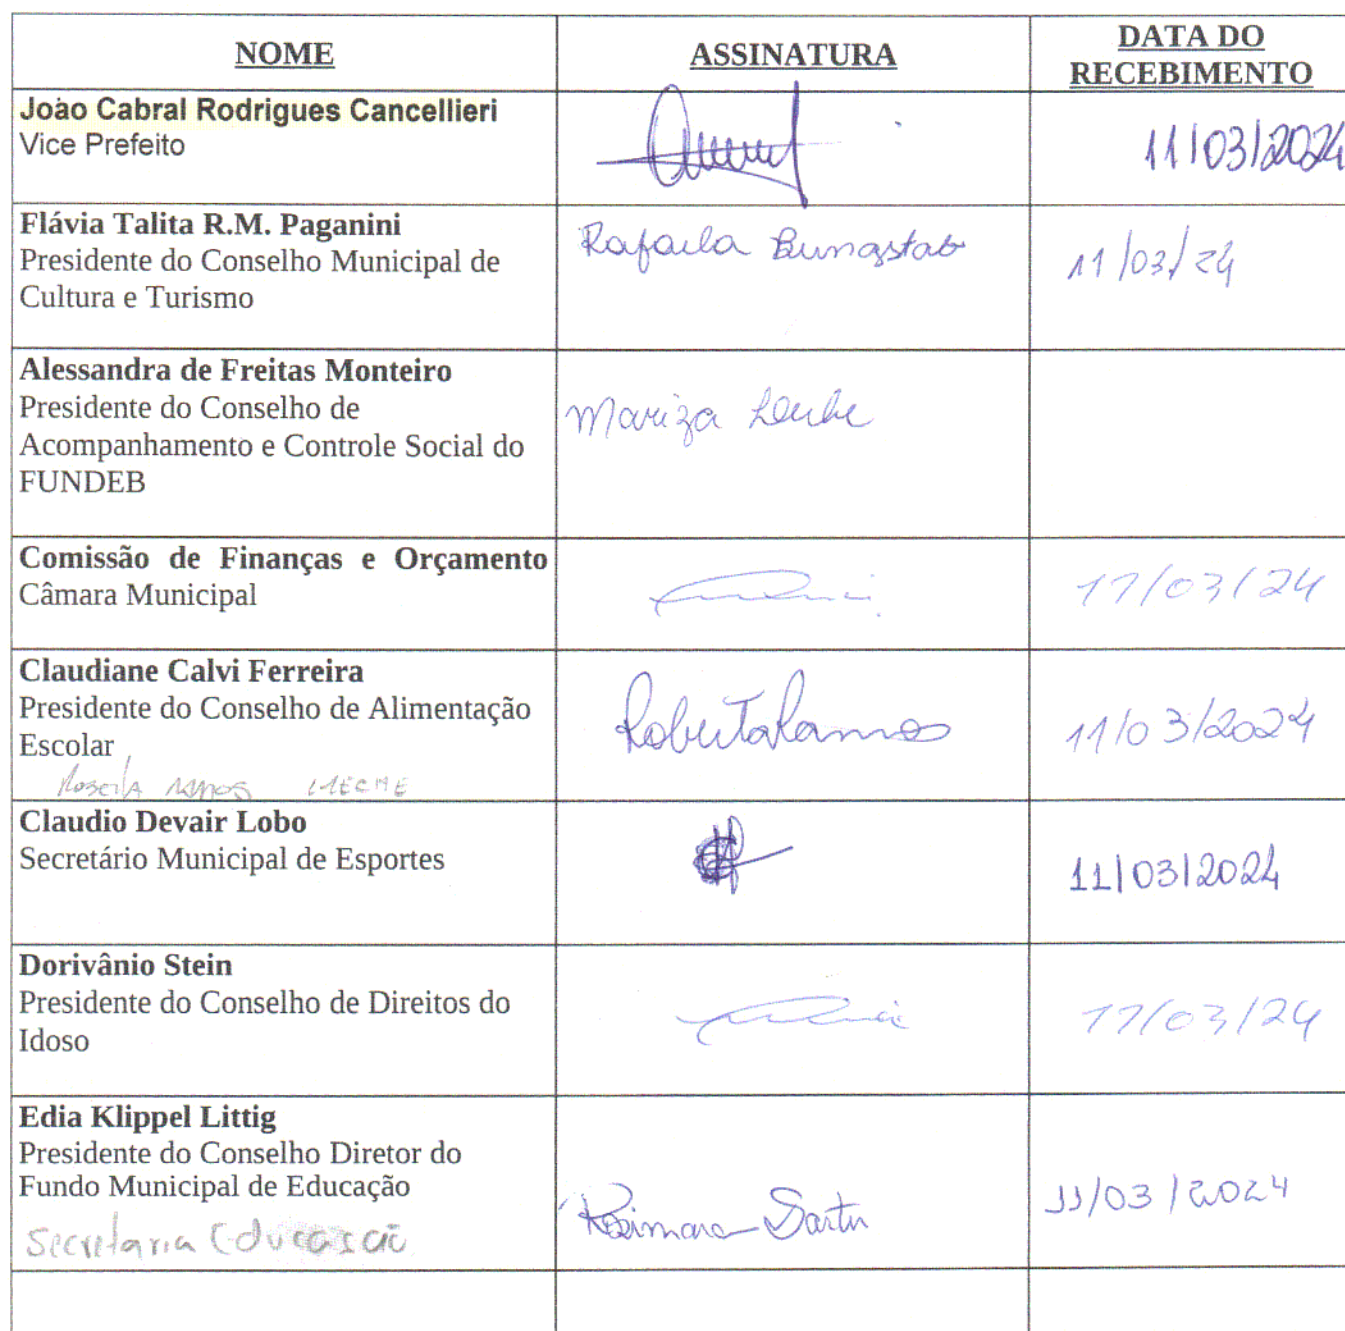 NOME
ASSINATURA
DATA DO
RECEBIMENTO
João Cabral Rodrigues Cancellieri
Vice Prefeito
11/03/2024
Flávia Talita R.M. Paganini
Presidente do Conselho Municipal de
Cultura e Turismo
Rafaela
11/03/24
Alessandra de Freitas Monteiro
Presidente do Conselho de
Acompanhamento e Controle Social do
FUNDEB
Mariza
Comissão de Finanças e Orçamento
Câmara Municipal
11/03/24
Claudiane Calvi Ferreira
Presidente do Conselho de Alimentação
Escolar
Roberta Ramos
11/03/2024
Claudio Devair Lobo
Secretário Municipal de Esportes
11/03/2024
Dorivânio Stein
Presidente do Conselho de Direitos do
Idoso
11/03/24
Edia Klippel Littig
Presidente do Conselho Diretor do
Fundo Municipal de Educação
Secretaria
Rosimara
11/03/2024